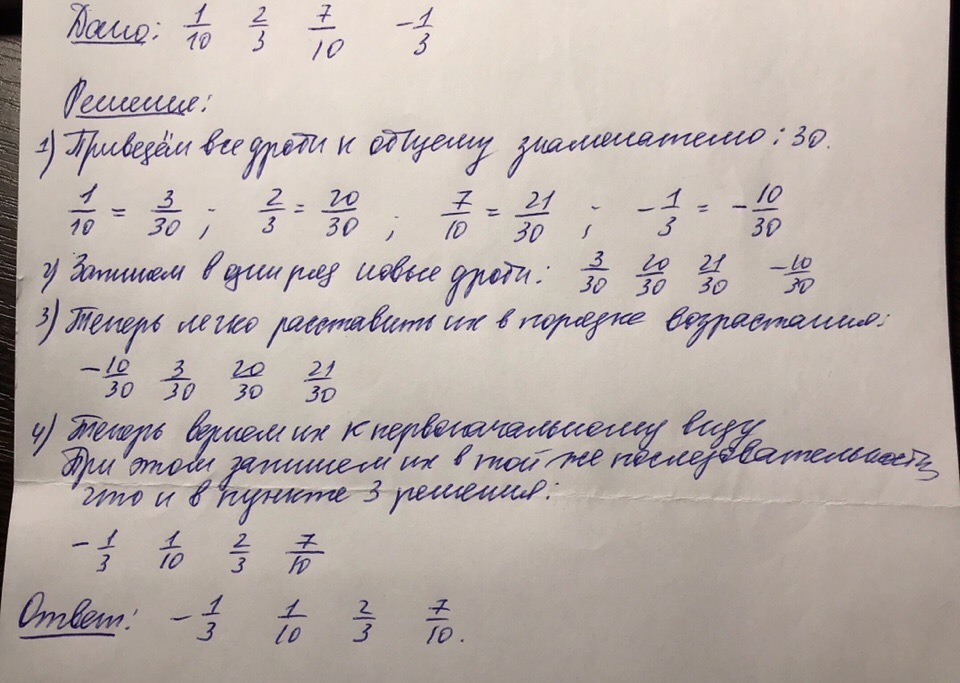 Дано: 1/10 2/3 7/10 -1/3
Решения:
1) Приведём все дроби к общему знаменателю: 30.
1/10 = 3/30 ; 2/3 = 20/30 ; 7/10 = 21/30 ; -1/3 = -10/30
2) Запишем в один ряд новые дроби: 3/30 20/30 21/30 -10/30
3) Теперь легко расставить их в порядке возрастания:
-10/30 3/30 20/30 21/30
4) Теперь вернем их к первоначальному виду
При этом запишем их в той же последовательности,
что и в пункте 3 решения:
-1/3 1/10 2/3 7/10
Ответ: -1/3 1/10 2/3 7/10.